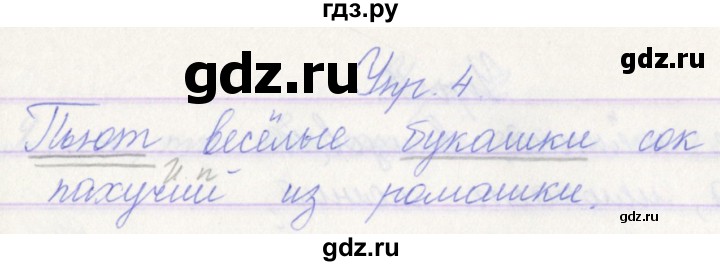 гдз.ру
gdz.ru
Упр. 4
Пьют весёлые букашки сок
И п
пахучий из ромашки.
gdz.ru
gdz.ru